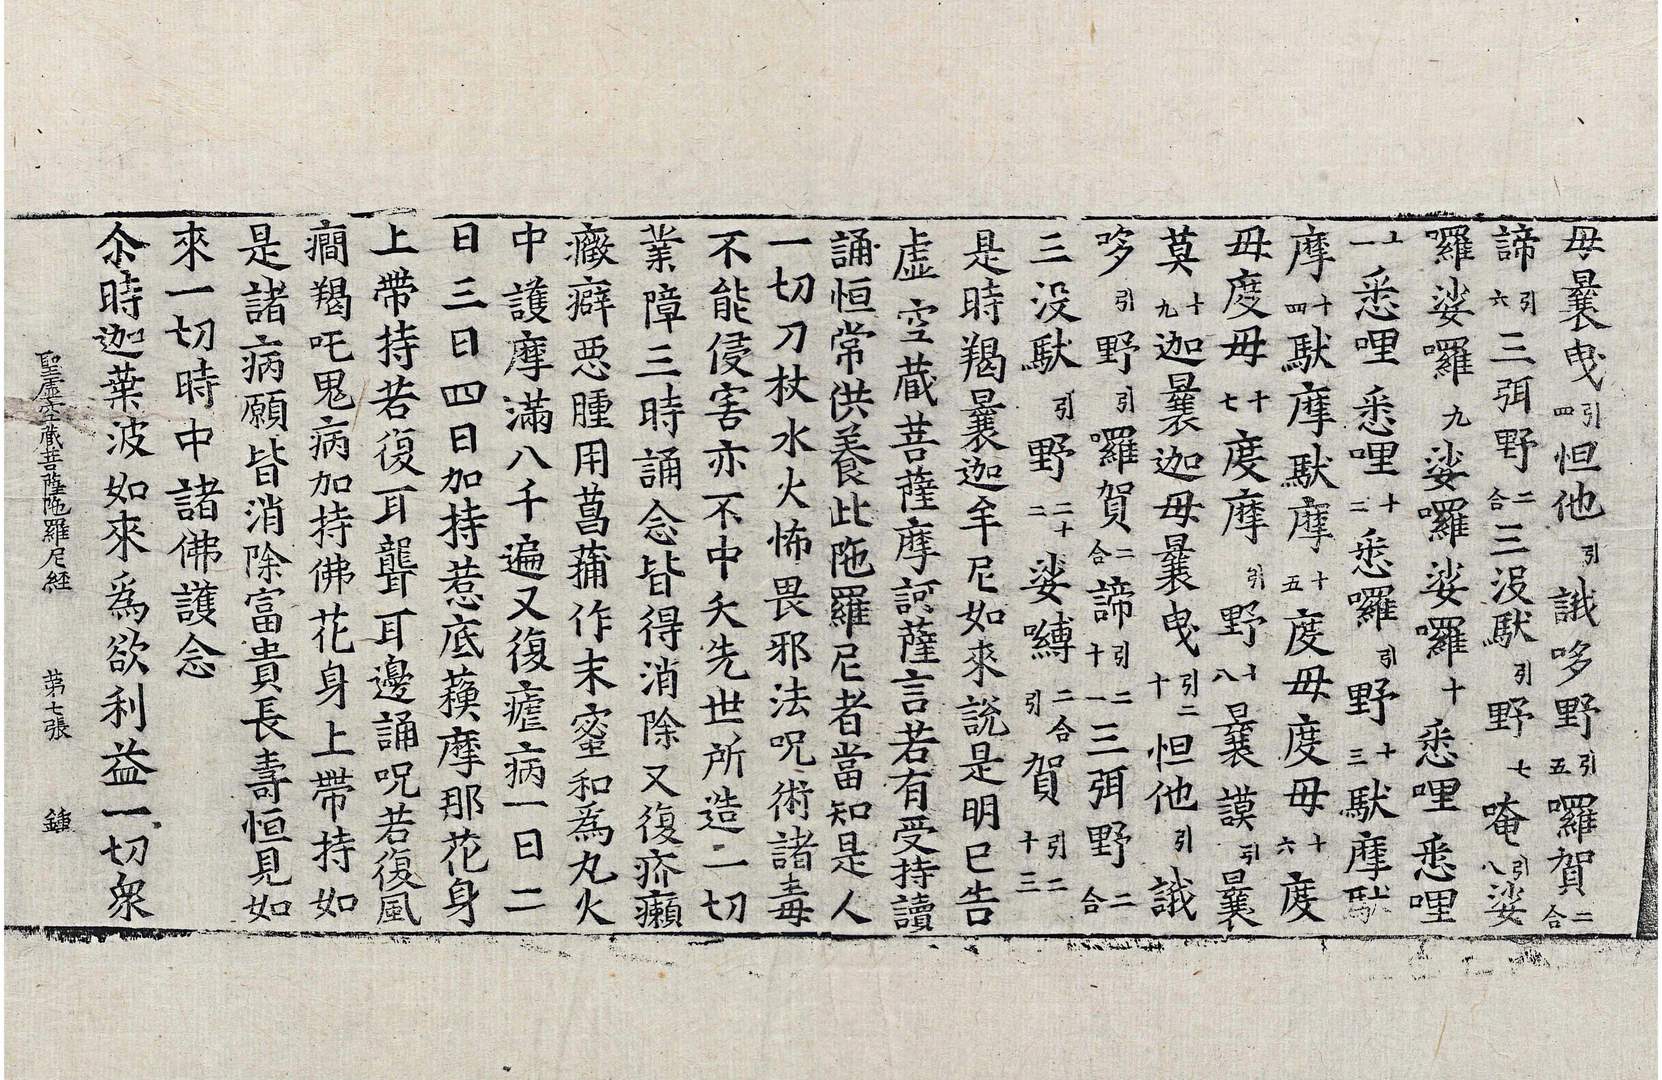 毋曩曳引四怛他引誐哆野引五囉賀二合
諦引六三弭野二合三没馱引野七唵引八娑
囉娑囉九娑囉娑囉十悉哩悉哩
十一悉哩悉哩十二悉囉引野十三馱摩馱
摩十四馱摩馱摩十五度毋度毋十六度
毋度毋十七度摩引野十八曩謨引曩
莫十九迦曩迦毋曩曳引二十怛他引誐
哆引野引囉賀二合諦引二十一三弭野二合
三没馱引野二十二娑嚩二合引賀引二十三
是時羯曩迦牟尼如來說是明已告
虛空藏菩薩摩訶薩言若有受持讀
誦恒常供養此陁羅尼者當知是人
一切刀杖水火怖畏邪法呪術諸毒
不能侵害亦不中夭先世所造一切
業障三時誦念皆得消除又復疥癩
癥癖惡腫用菖蒲作末蜜和為丸火
中護摩滿八千遍又復瘧病一日二
日三日四日加持惹底蘱摩那花身
上帶持若復耳聾耳邊誦呪若復風
癎羯吒鬼病加持佛花身上帶持如
是諸病願皆消除富貴長壽恒見如
來一切時中諸佛護念
尒時迦葉波如來為欲利益一切衆
聖虛空藏菩薩陁羅尼經 第七張 鍾